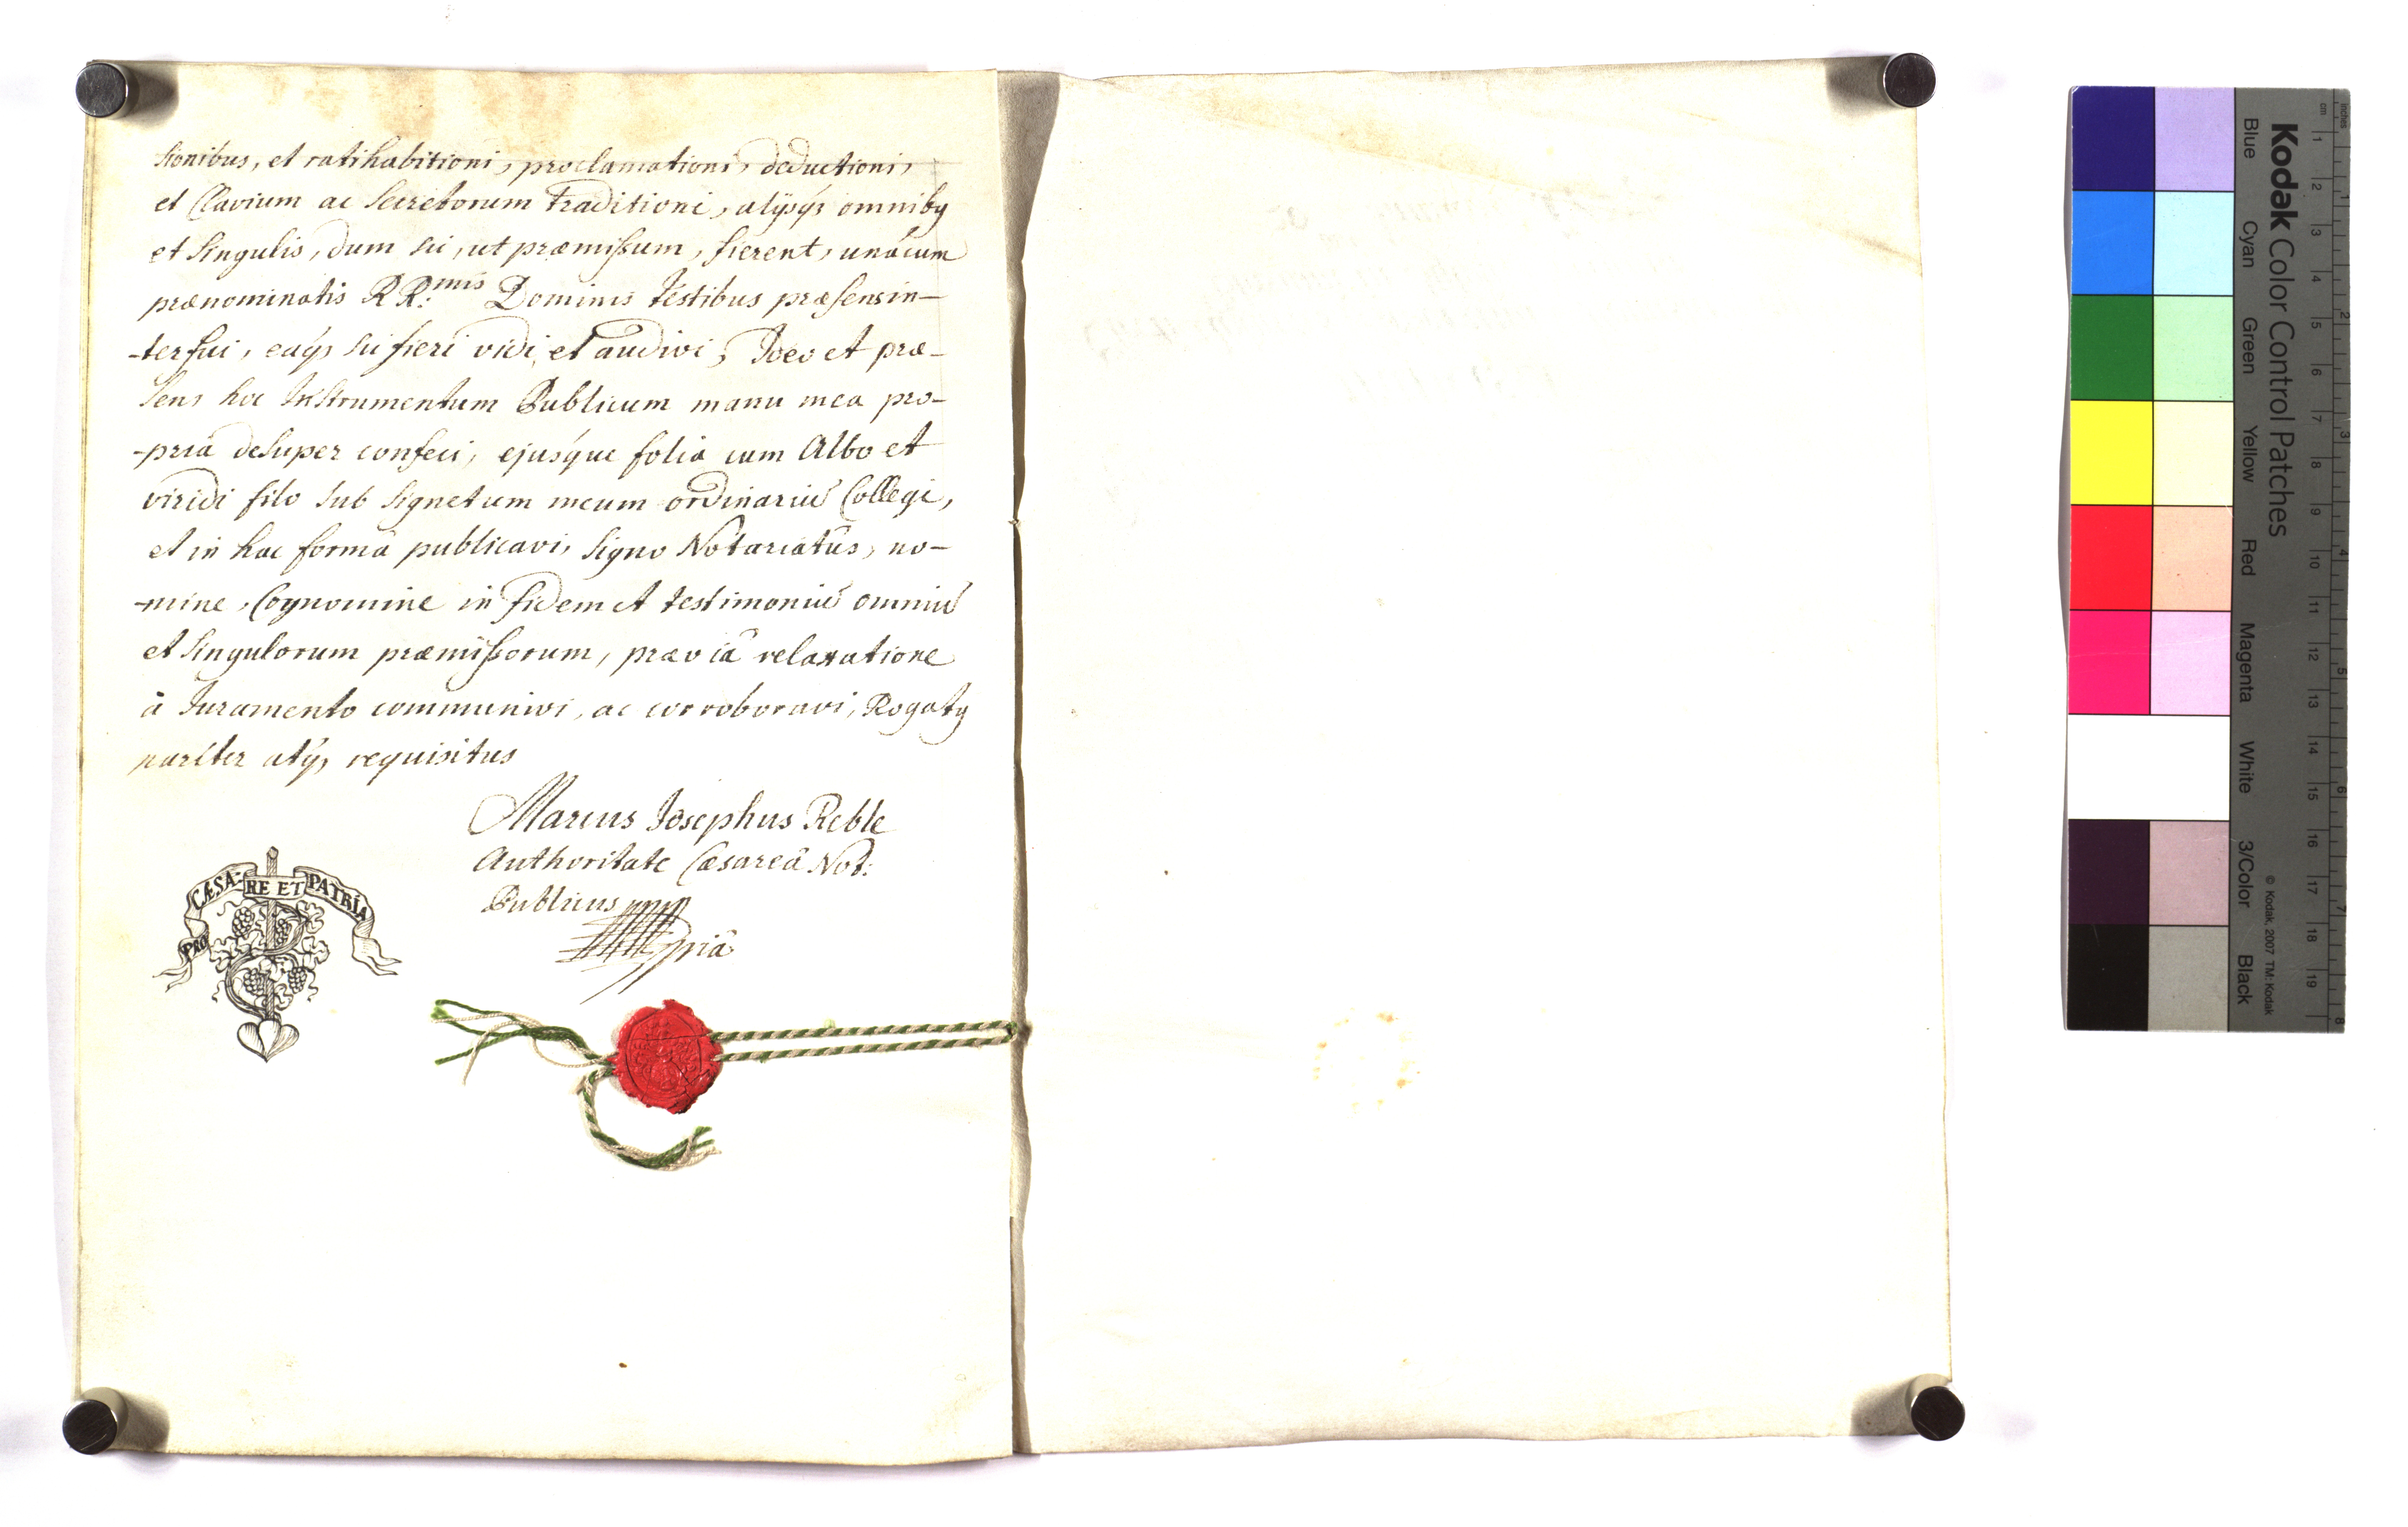 sionibus, et ratihabitioni, proclamationi, deductioni,
et Clavium ac Secretorum Traditioni, alÿsq; omnibꝯ
et Singulis, dum sic, ut præmissum, fierent, unácum
prænominatis RR:mis Dominis Testibus præsens in-
-terfui, eaq; sic fieri vidi, et audivi, Ideo et præ-
sens hoc Instrumentum Publicum manu mea pro-
-priâ desuper confeci, ejusque folia cum Albo et
viridi filo sub Signetum meum ordinariū Collegi,
et in hac formâ publicavi, Signo Notariatûs, no-
-mine, Cognomine in fidem et testimoniū omniū
et Singulorum præmissorum, præviâ relaxatione
à Juramento communivi, ac corroboravi, Rogatꝯ
pariter atq; requisitus
Marcus Josephus Reble
Authoritate Cæsareâ Not:
Publicus
ppriâ
PRO CÆSA-RE ET PATRIA
Kodak Color Control Patches
Blue Cyan Green Yellow Red Magenta White 3/Color Black
© Kodak, 2007 TM: Kodak
inches 1 2 3 4 5 6 7 8
cm 1 2 3 4 5 6 7 8 9 10 11 12 13 14 15 16 17 18 19